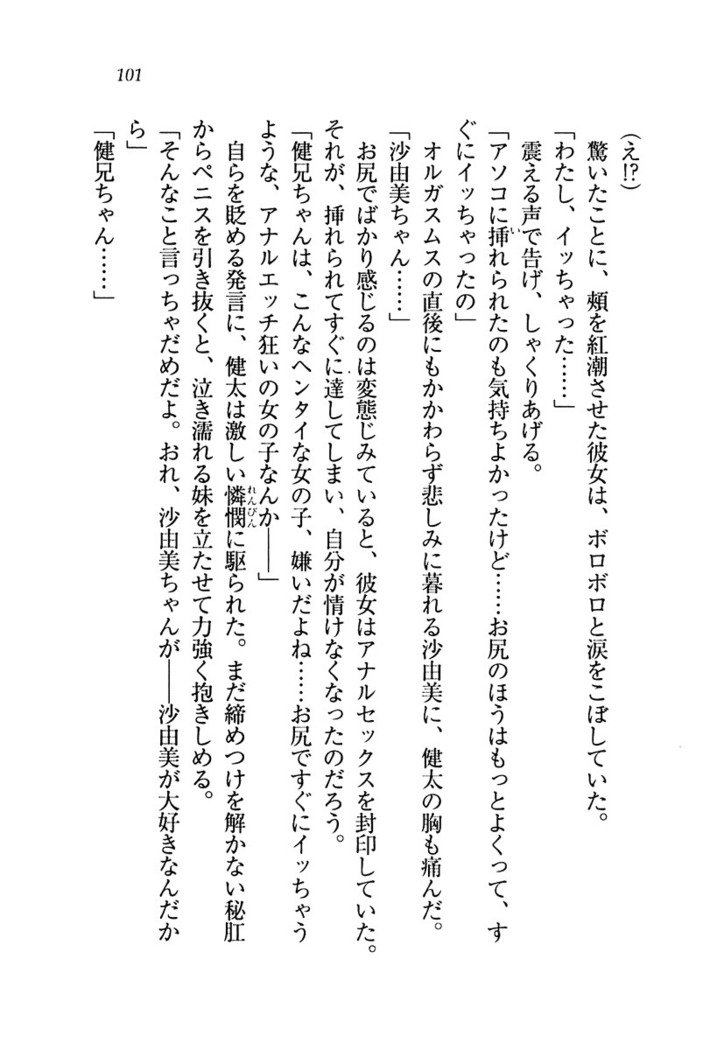 101
(え!?)
驚いたことに、頰を紅潮させた彼女は、ボロボロと涙をこぼしていた。
「わたし、イッちゃった……」
震える声で告げ、しゃくりあげる。
「アソコに挿れられたのも気持ちよかったけど……お尻のほうはもっとよくって、す
ぐにイッちゃったの」
オルガスムスの直後にもかかわらず悲しみに暮れる沙由美に、健太の胸も痛んだ。
「沙由美ちゃん……」
お尻でばかり感じるのは変態じみていると、彼女はアナルセックスを封印していた。
それが、挿れられてすぐに達してしまい、自分が情けなくなったのだろう。
「健兄ちゃんは、こんなヘンタイな女の子、嫌いだよね……お尻ですぐにイッちゃう
ような、アナルエッチ狂いの女の子なんか――」
自らを貶める発言に、健太は激しい憐憫に駆られた。まだ締めつけを解かない秘肛
からペニスを引き抜くと、泣き濡れる妹を立たせて力強く抱きしめる。
「そんなこと言っちゃだめだよ。おれ、沙由美ちゃんが――沙由美が大好きなんだか
ら」
「健兄ちゃん……」